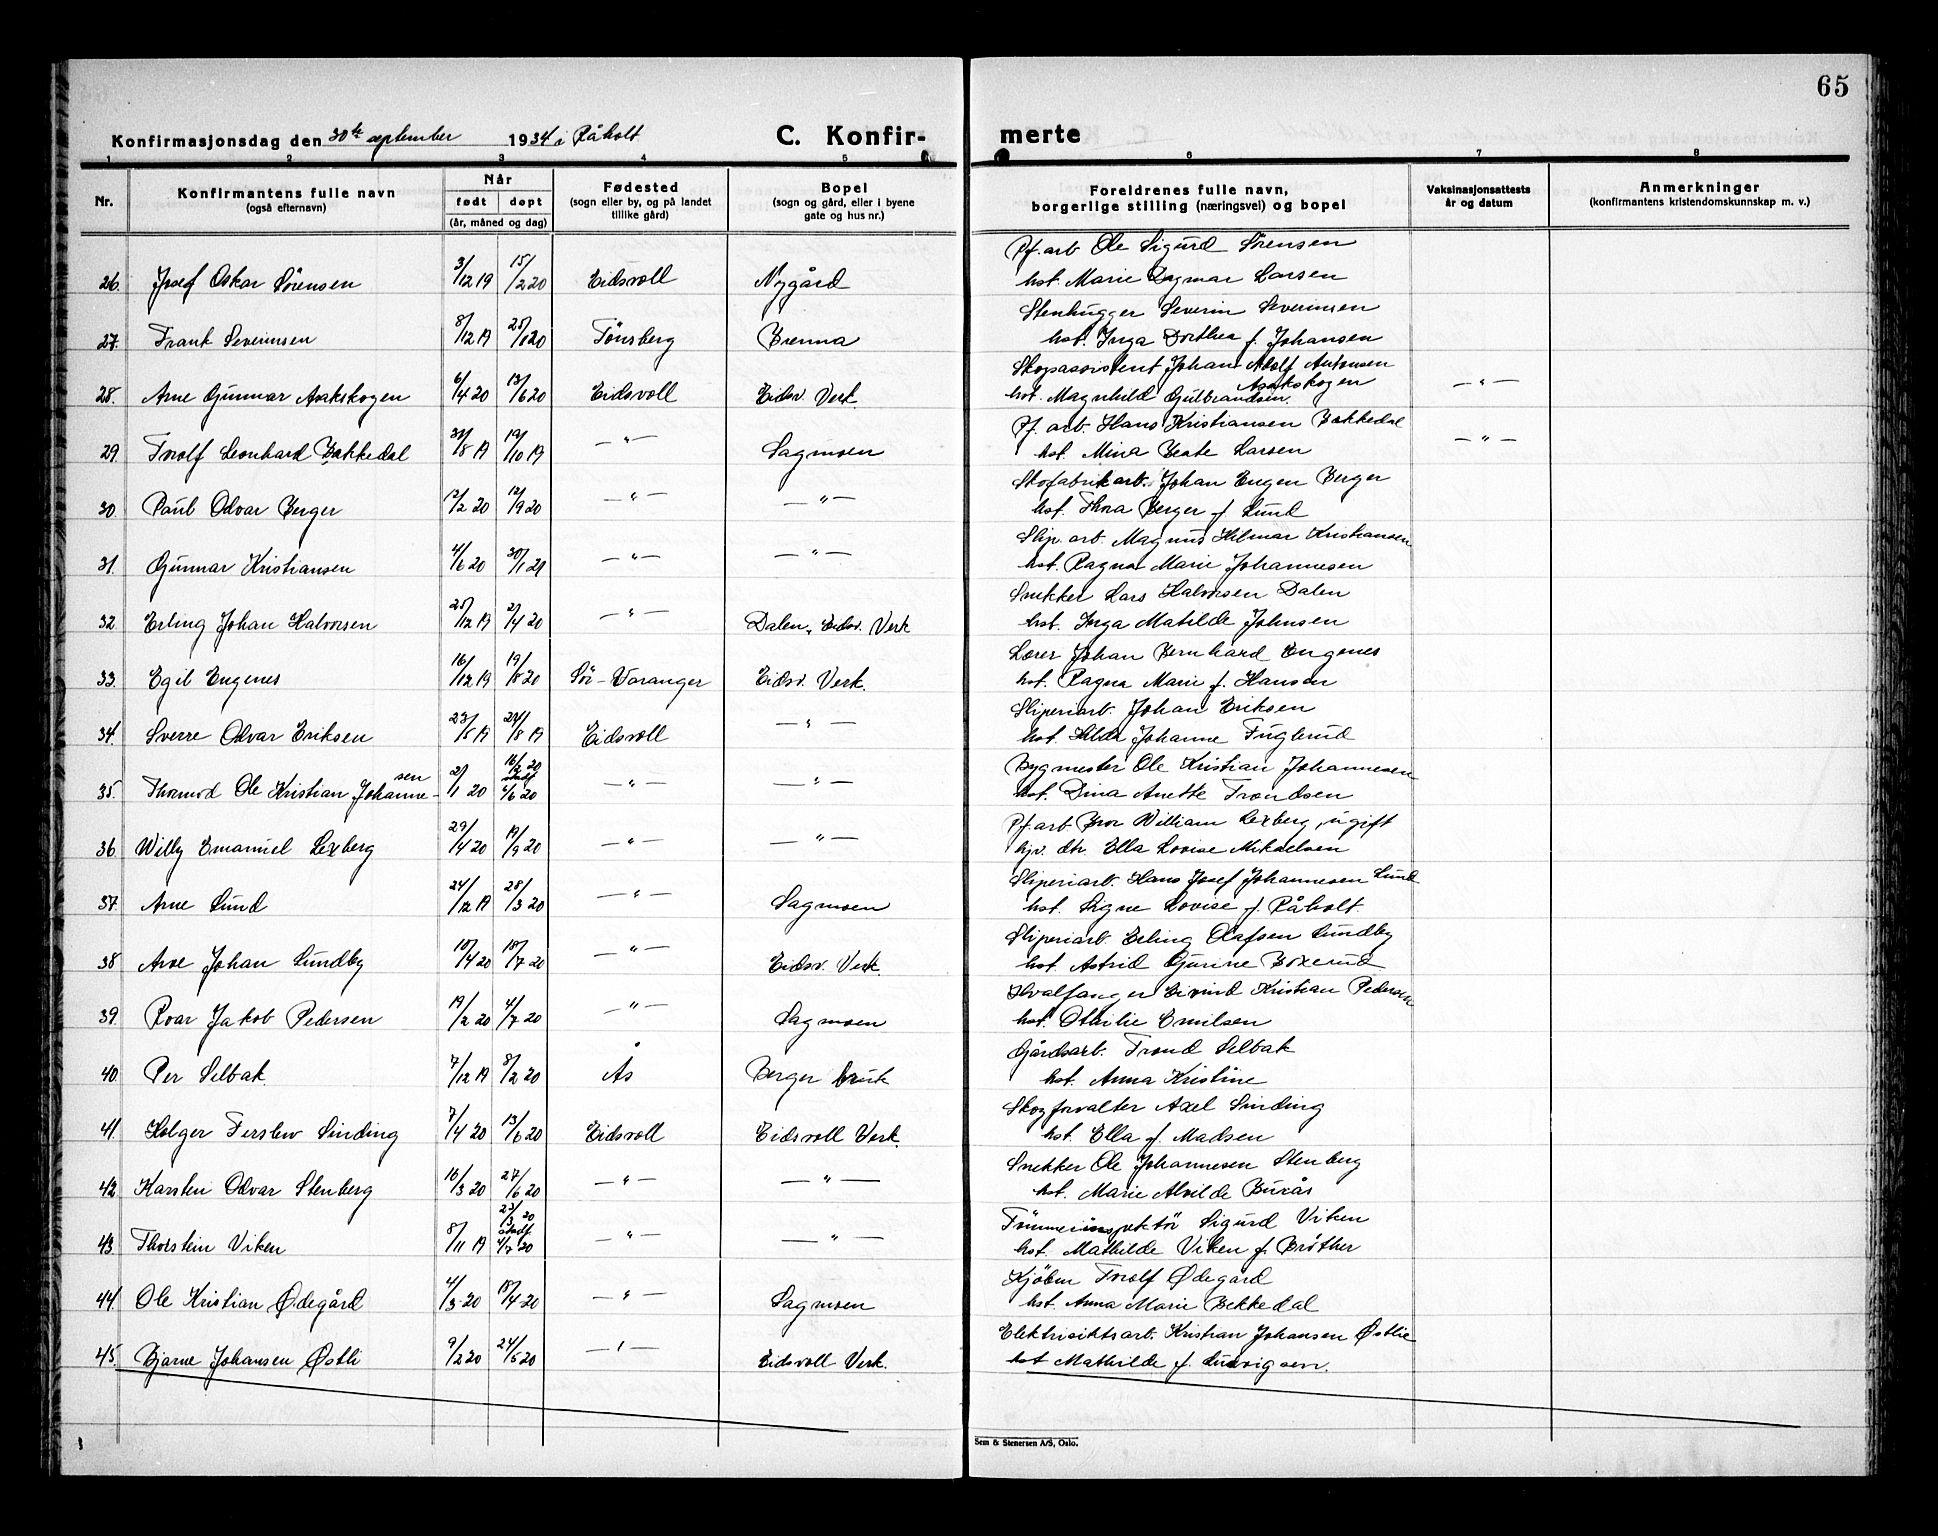 65
Konfirmasjonsdag den 30te september 1934 i Råholt C. Konfir- merte
1 2 3 4 5 6 7 8
Nr. Konfirmantens fulle navn (også efternavn) Når født døpt (år, måned og dag) Fødested (sogn eller by, og på landet tillike gård) Bopel (sogn og gård, eller i byene gate og hus nr.) Foreldrenes fulle navn, borgerlige stilling (næringsvei) og bopel Vaksinasjonsattests år og datum Anmerkninger (konfirmantens kristendomskunnskap m. v.)
Pf. arb. Ole Sigurd Sørensen
26. Josef Oskar Sörensen 3/12 19 15/2 20 Eidsvoll Nygård hst. Marie Dagmar Larsen
Stenhugger Severin Severinsen
27. Frank Severinsen 8/12 19 25/ 20 Tönsberg Brenna hst. Inga Dorthea f. Johansen
Skopassistent Johan Adolf Antonsen
Aaskskogen
28. Arne Gunnar Aakskogen 6/4 20 13/6 20 Eidsvoll Eidsv. Verk. hst. Magnhild Gulbrandsen — " —
Pf. arb. Hans Kristiansen Bakkedal
29. Trolf Leonhard Bakkedal /8 19 19/10 19 — " — Sagmoen hst. Mina Beate Larsen — " —
Skofabrikarb. Johan Eugen Berger
30. Paul Odvar Berger 12/2 20 12/9 20 — " — — " — hst. Thora Berger f. Lund
Slip. arb. Magnus Hilmar Kristiansen
31. Gunnar Kristiansen 4/6 20 30/1 21 — " — — " — hst. Ragna Marie Johannesen
Snekker Lars Halvorsen Dalen
32. Erling Johan Halvorsen 25/12 19 2/4 20 — " — Dalen, Eidsv. Verk hst. Inga Matilde Johnsen
Lærer Johan Bernhard Engenes
33. Egil Engenes 16/12 19 19/8 20 Sör-Varanger Eidsv. Verk. hst. Ragna Marie f. Hansen
Sliperiarb. Johan Eriksen
34. Sverre Odvar Eriksen 23/5 19 24/8 19 Eidsvoll — " — hst. Hilda Johanne Fuglerud
sen 16/2 20 Bygmester Ole Kristian Johannesen
stadf.
35. Thormod Ole Kristian Johanne- 2/1 20 4/6 20 — " — — " — hst. Dina Anette Trondsen
Pf. arb. Bror William Lexberg, ugift
36. Willy Emanuel Lexberg 29/4 20 19/9 20 — " — — " — hjv. dtr. Ella Lovise Mikaelsen
Sliperiarb. Hans Josef Johannesen Lund
37. Arne Lund 24/12 19 28/3 20 — " — Sagmoen hst. Signe Lovise f. Råholt.
Sliperiarb. Erling Olafsen Lundby
38 Arve Johan Lundby 18/4 20 18/7 20 — " — Eidsv. Verk. hst. Astrid Gurine Boxerud
Hvalfanger Eivind Kristian Pedersen
39. Roar Jakob Pedersen 19/2 20 4/7 20 — " — Sagmoen hst. Othilie Emilsen
Gårdsarb. Trond Selbak
40. Per Selbak. 7/12 19 8/2 20 Ås Berger bruk hst. Anna Kristine
Skogforvalter Axel Sinding
41. Holger Ferslew Sinding 7/4 20 13/6 20 Eidsvoll Eidsvoll Verk. hst. Ella f. Madsen
Snekker Ole Johannesen Stenberg
42 Karsten Odvar Stenberg 16/3 20 27/6 20 — " — — " — hst. Marie Alvilde Burås
23/3 20 Tömmerinspektör Sigurd Viken
stadf.
43. Thorstein Viken 8/11 19 4/7 20 — " — — " — hst. Mathilde Viken f. Bröther
Kjöbm Trolf Ødegård
44. Ole Kristian Ødegård 4/3 20 18/4 20 — " — Sagmoen hst. Anna Marie Bekkedal
Elektrisitetsarb. Kristian Johansen Østlie
45. Bjarne Johansen Østli 9/2 20 24/5 20 — " — Eidsvoll Verk. hst Mathilde f. Ludvigsen.
Sem & Stenersen A/S, Oslo.